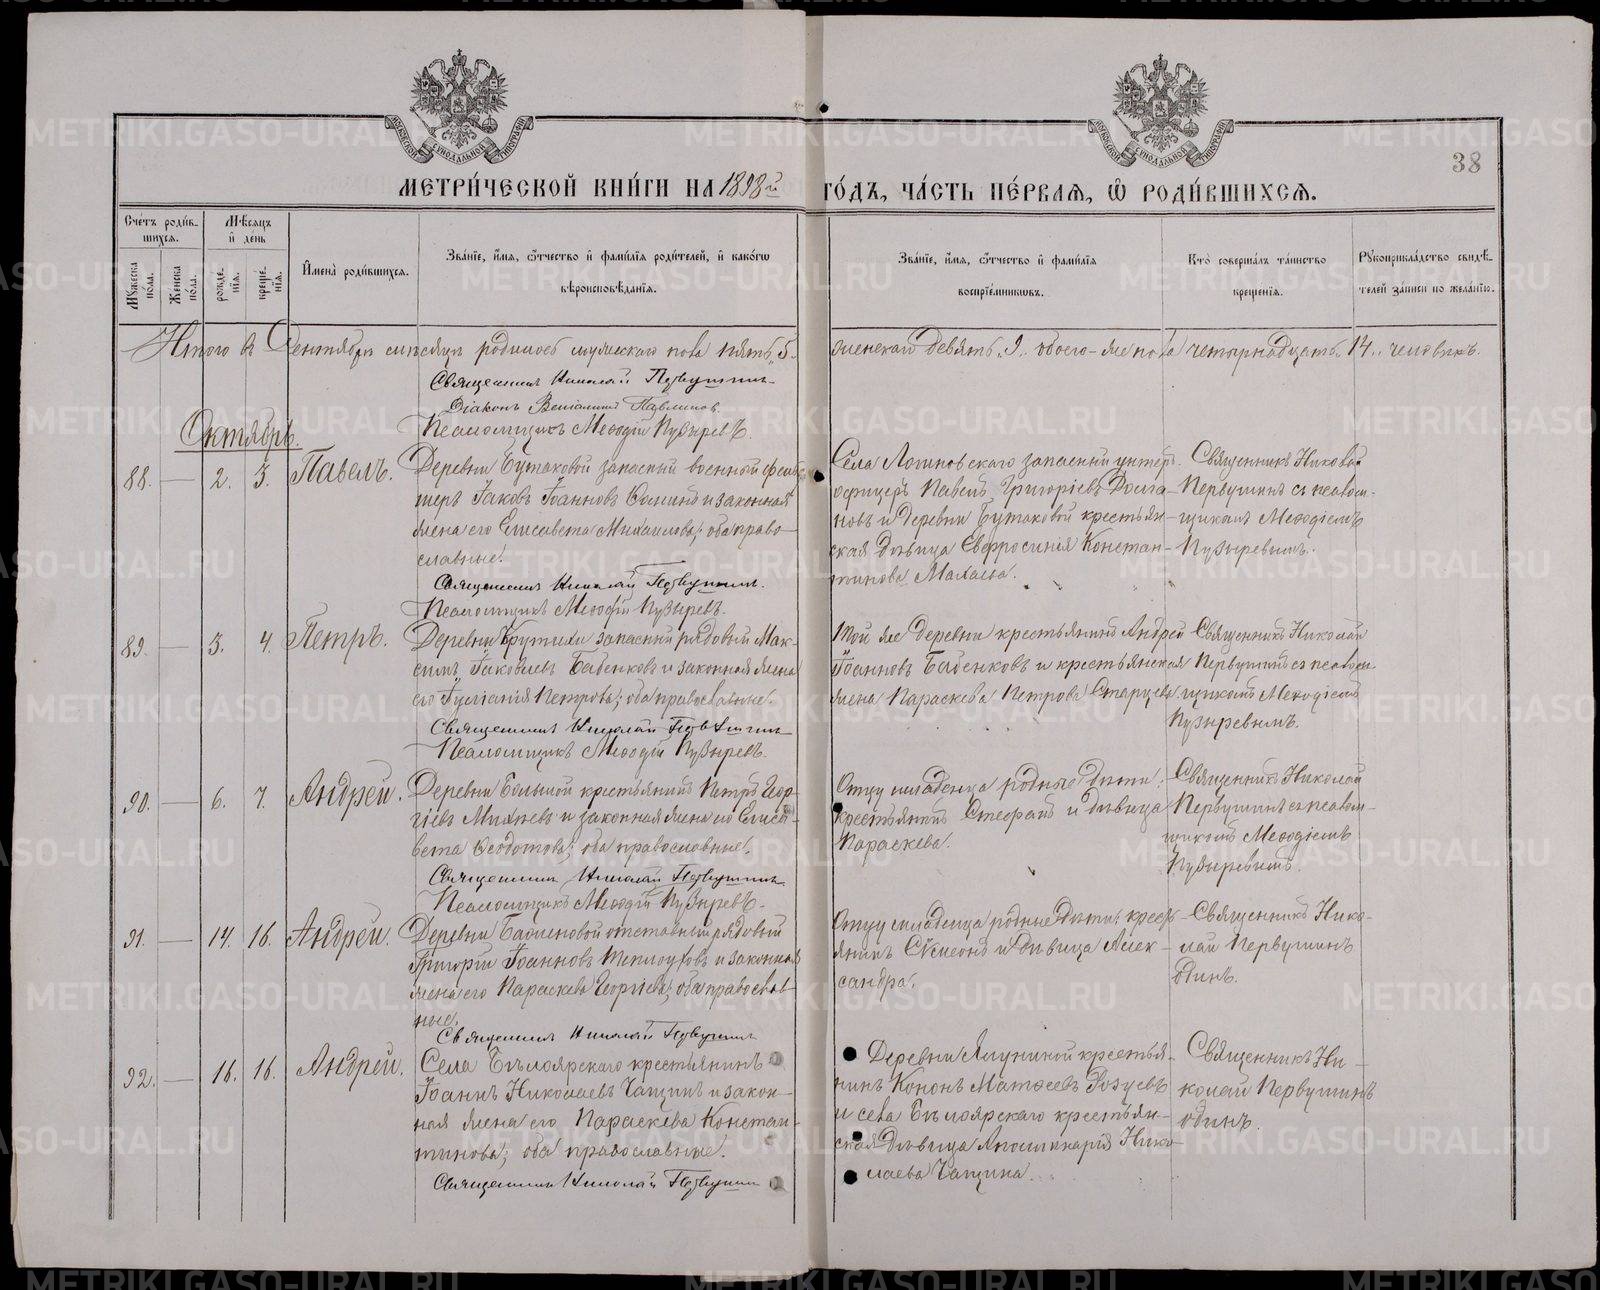 38
МЕТРИ́ЧЕСКОЙ КНИ́ГИ НА 1898й ГО́ДЪ, ЧА́СТЬ ПЕ́РВАЯ, Ѿ РОДИ́ВШИХСЯ.
Сче́тъ роди́в-
шихся.
Му́жеска по́ла.
Же́нска по́ла.
Мѣ́сяцъ
и҆ де́нь
рожде́нїя.
креще́нїя.
И҆мена̀ роди́вшихся.
Зва́нїе, и҆́мя, ѻ҆́тчество и҆ фами́лїя роди́телей, и҆ како́гѡ
вѣроисповѣ́данїя.
Зва́нїе, и҆́мя, ѻ҆́тчество и҆ фами́лїя
воспрїе́мниковъ.
Кто̀ соверша́лъ та́инство
креще́нїя.
Рꙋкоприкла́дство свидѣ́-
телей за́писи по жела́нїю.
Итого въ Сентябрѣ мѣсяцѣ родилось мужескаго пола пять, 5.
женскаго девять, 9. обоего-же пола четырнадцать, 14. человѣкъ.
Священникъ Николай Первушинъ
Діаконъ Веніаминъ Павлиновъ.
Псаломщикъ Меѳодій Пузыревъ.
Октябрь.
88. — 2. 3. Павелъ.
Деревни Бутаковой запасный военный фельд-
шеръ Іаковъ Іоанновъ и законная
жена его Елисавета Михаилова; оба право-
славные.
Священникъ Николай Первушинъ.
Псаломщикъ Меѳодій Пузыревъ.
Села Логиновскаго запасный унтеръ-
офицеръ Павелъ Григоріевъ Долга-
новъ и деревни Бутаковой крестьян-
ская дѣвица Евфросинія Констан-
тинова
Священникъ Николай
Первушинъ съ псалом-
щикомъ Меѳодіемъ
Пузыревымъ.
89. — 3. 4. Петръ.
Деревни Крутихи запасный рядовой Мак-
симъ Іаковлевъ Бабенковъ и законная жена
его Іуліанія Петрова; оба православные.
Священникъ Николай Первушинъ
Псаломщикъ Меѳодій Пузыревъ.
Той же деревни крестьянинъ Андрей
Іоанновъ Бабенковъ и крестьянская
жена Параскева Петрова Старцева
Священникъ Николай
Первушинъ съ псалом-
щикомъ Меѳодіемъ
Пузыревымъ.
90. — 6. 7. Андрей.
Деревни Большой крестьянинъ Петръ Геор-
гіевъ Михѣевъ и законная жена его Елиса-
вета Ѳеодотова; оба православные.
Священникъ Николай Первушинъ
Псаломщикъ Меѳодій Пузыревъ.
Отцу младенца родные дѣти:
крестьянинъ Стефанъ и дѣвица
Параскева.
Священникъ Николай
Первушинъ съ псалом-
щикомъ Меѳодіемъ
Пузыревымъ.
91. — 14. 16. Андрей.
Деревни отставный рядовой
Григорій Іоанновъ Теплоуховъ и законная
жена его Параскева Георгіева; оба православ-
ные.
Священникъ Николай Первушинъ
Отцу младенца родные дѣти: кресть-
янинъ Сѷмеонъ и дѣвица Алек-
сандра.
Священникъ Нико-
лай Первушинъ
одинъ.
92. — 16. 16. Андрей.
Села Бѣлоярскаго крестьянинъ
Іоаннъ Николаевъ Чащинъ и закон-
ная жена его Параскева Констан-
тинова; оба православные.
Священникъ Николай Первушинъ
Деревни Ялуниной крестья-
нинъ Кононъ Матѳеевъ
и села Бѣлоярскаго крестьян-
ская дѣвица Аполлинарія Нико-
лаева Чащина.
Священникъ Ни-
колай Первушинъ
одинъ.
METRIKI.GASO-URAL.RU